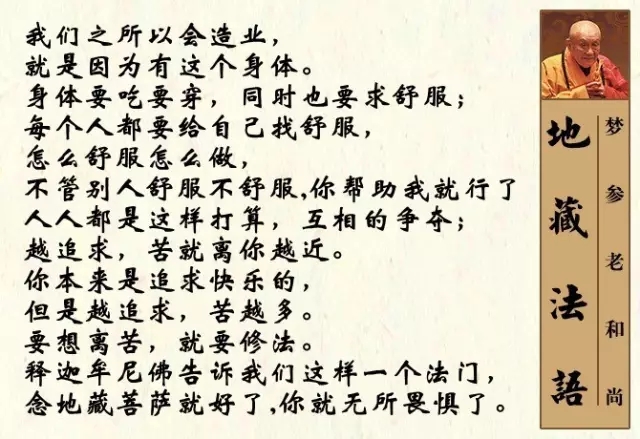 我们之所以会造业，
就是因为有这个身体。
身体要吃要穿，同时也要求舒服；
每个人都要给自己找舒服，
怎么舒服怎么做，
不管别人舒服不舒服,你帮助我就行了
人人都是这样打算，互相的争夺；
越追求，苦就离你越近。
你本来是追求快乐的，
但是越追求，苦越多。
要想离苦，就要修法。
释迦牟尼佛告诉我们这样一个法门，
念地藏菩萨就好了,你就无所畏惧了。
地藏法語
梦参老和尚